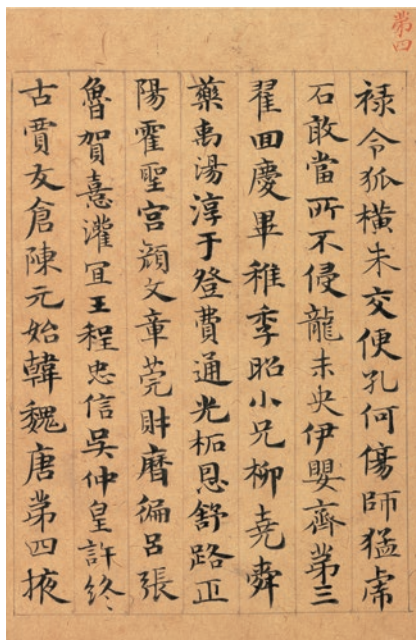 第四
禄令狐橫朱交便孔何傷師猛虎
石敢當所不侵龍未央伊嬰齊第三
翟回慶畢稚季昭小兄柳堯舜
藥禹湯淳于登費通光柘恩舒路正
陽霍聖宮顏文章莞財曆徧呂張
魯賀憙灌冝王程忠信吳仲皇許終
古賈友倉陳元始韓魏唐第四掖